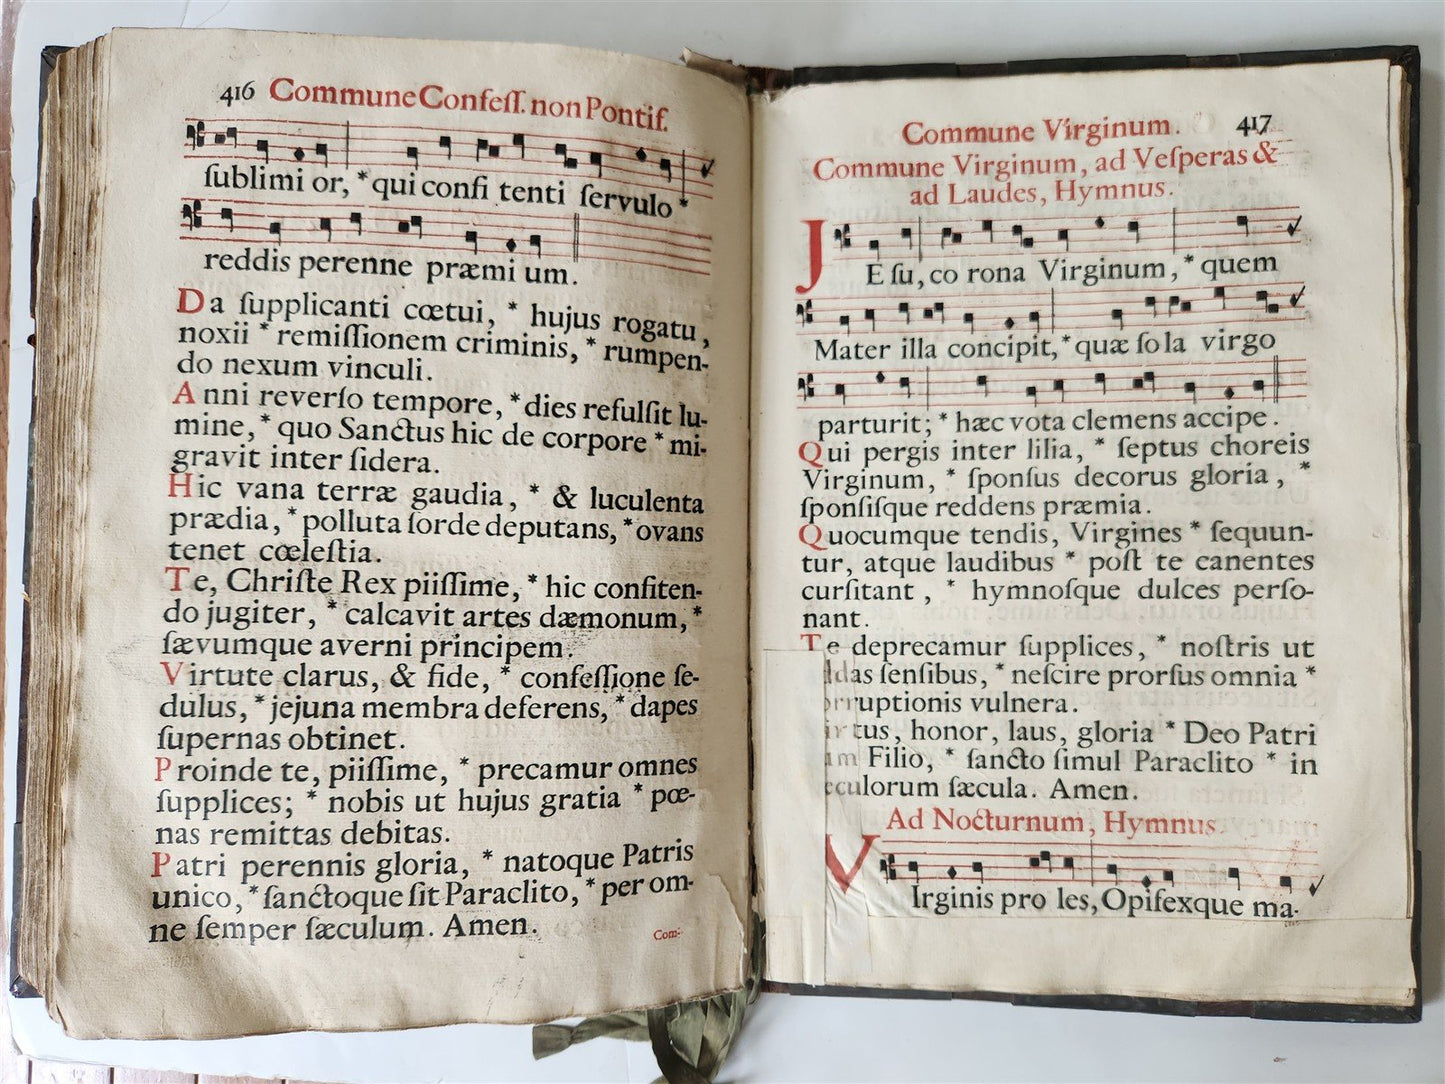 416 Commune Confeſſ. non Pontif.
ſublimi or, * qui confi tenti ſervulo *
reddis perenne præmi um.
Da ſupplicanti cœtui, * hujus rogatu,
noxii * remiſſionem criminis, * rumpen-
do nexum vinculi.
Anni reverſo tempore, * dies refulſit lu-
mine, * quo Sanctus hic de corpore * mi-
gravit inter ſidera.
Hic vana terræ gaudia, * & luculenta
prædia, * polluta ſorde deputans, * ovans
tenet cœleſtia.
Te, Chriſte Rex piiſſime, * hic confiten-
do jugiter, * calcavit artes dæmonum, *
ſævumque averni principem.
Virtute clarus, & fide, * confeſſione ſe-
dulus, * jejuna membra deferens, * dapes
ſupernas obtinet.
Proinde te, piiſſime, * precamur omnes
ſupplices; * nobis ut hujus gratia * pœ-
nas remittas debitas.
Patri perennis gloria, * natoque Patris
unico, * ſanctoque ſit Paraclito, * per om-
ne ſemper ſæculum. Amen.
Com-
Commune Virginum. 417
Commune Virginum, ad Veſperas &
ad Laudes, Hymnus.
JE ſu, co rona Virginum, * quem
Mater illa concipit, * quæ ſo la virgo
parturit; * hæc vota clemens accipe.
Qui pergis inter lilia, * ſeptus choreis
Virginum, * ſponſus decorus gloria, *
ſponſiſque reddens præmia.
Quocumque tendis, Virgines * ſequun-
tur, atque laudibus * poſt te canentes
curſitant, * hymnoſque dulces perſo-
nant.
Te deprecamur ſupplices, * noſtris ut
ddas ſenſibus, * neſcire prorſus omnia *
orruptionis vulnera.
irtus, honor, laus, gloria * Deo Patri
um Filio, * ſancto ſimul Paraclito * in
æculorum ſæcula. Amen.
Ad Nocturnum, Hymnus.
VIrginis pro les, Opifexque ma-